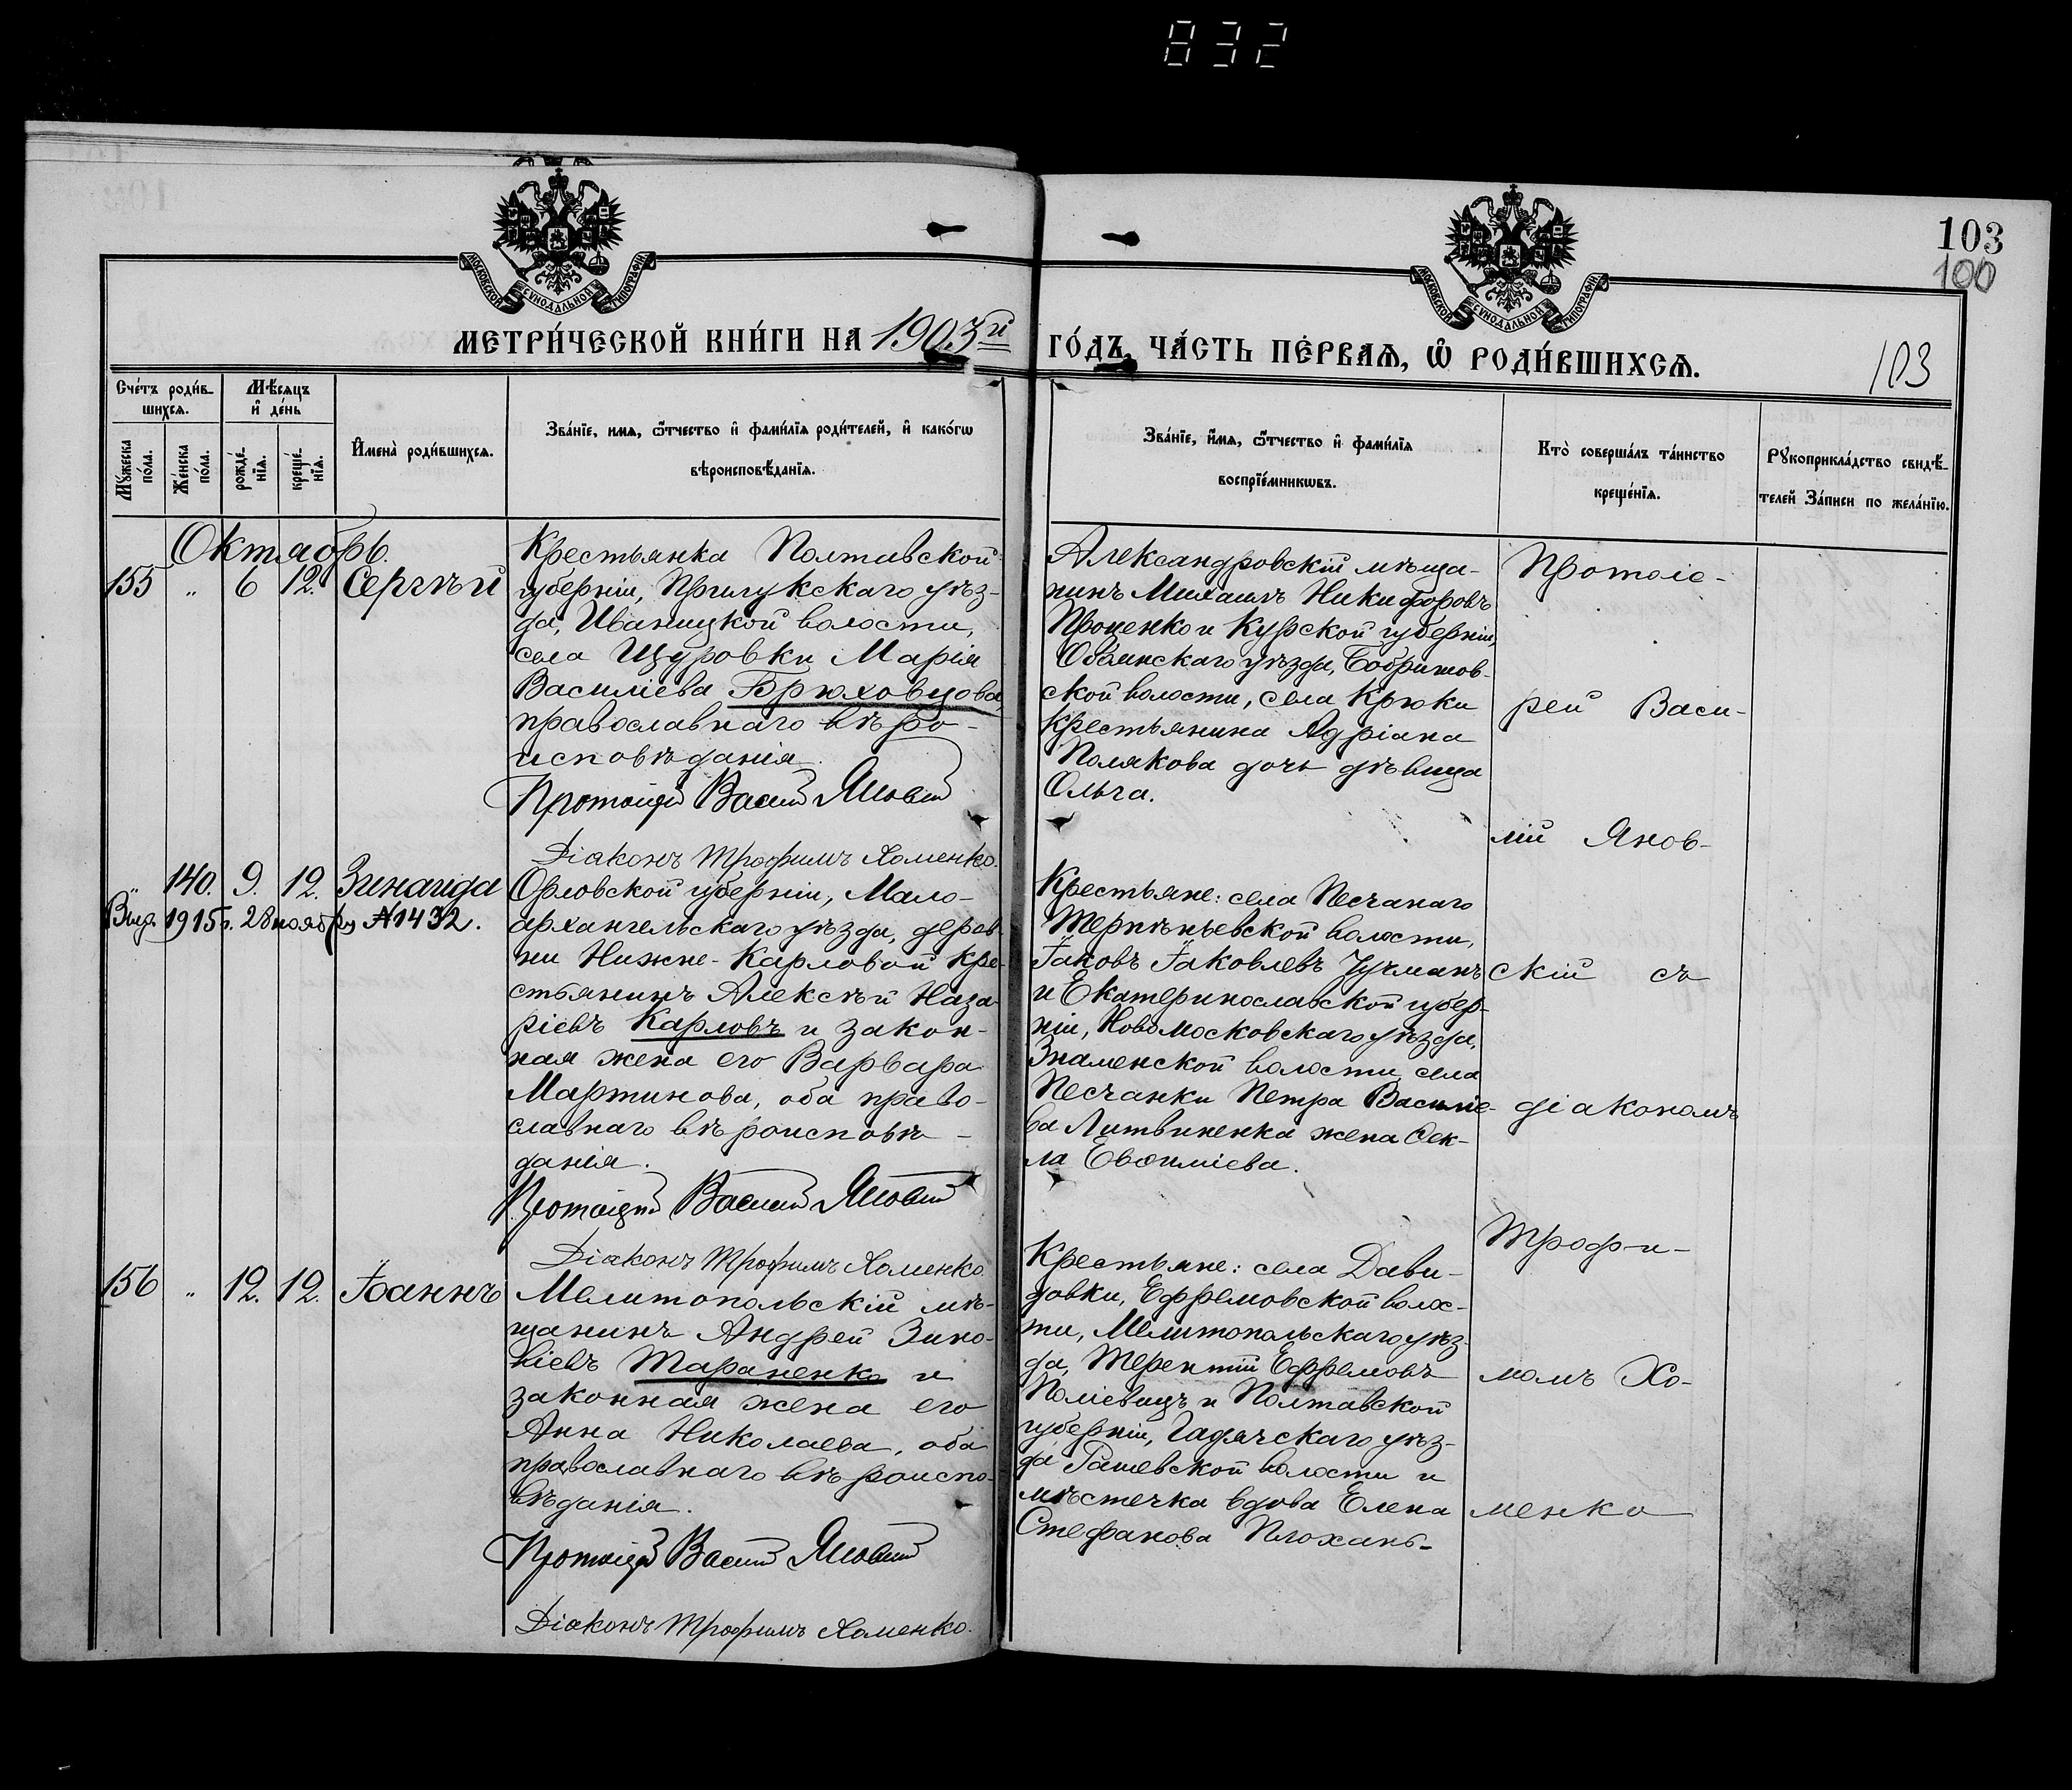 832
МОСКОВСКОЙ СѴНОДАЛЬНОЙ ТИПОГРАФІИ
МОСКОВСКОЙ СѴНОДАЛЬНОЙ ТИПОГРАФІИ
103
100
103
МЕТРИ́ЧЕСКОЙ КНИ́ГИ НА 1903й ГО́ДЪ, ЧА́СТЬ ПЕ́РВАѦ, Ѡ РОДИ́ВШИХСѦ.
Сче́тъ роди́в-
шихсѧ.
Мѣ́сѧцъ
и҆ де́нь
Мꙋ́жеска по́ла.
Же́нска по́ла.
рожде́-
нїѧ.
креще́-
нїѧ.
И҆мена̀ роди́вшихсѧ.
Зва́нїе, имѧ, ѿтчество и҆ фами́лїѧ роди́телей, и҆ како́гѡ
вѣроисповѣ́данїѧ.
Зва́нїе, и҆́мѧ, ѿтчество и҆ фами́лїѧ
воспрїе́мникѡвъ.
Кто̀ соверша́лъ та́инство
креще́нїѧ.
Рꙋкоприкла́дство свидѣ́-
телей За́писи по жела́нїю.
Октябрь.
155 " 6 12. Сергѣй
Крестьянка Полтавской
губерніи, Прилукскаго уѣз-
да, Иваницкой волости,
села Щуровки Марія
Василіева Брюховцова,
православнаго вѣро-
исповѣданія.
Протоіерей Василій Яновскій
Діаконъ Трофимъ Хоменко.
Александровскій мѣща-
нинъ Михаилъ Никифоровъ
Проценко и Курской губерніи,
Обоянскаго уѣзда, Бобришов-
ской волости, села Крюки
крестьянина Адріана
Полякова дочь дѣвица
Ольга.
" 140. 9. 12. Зинаида
Выд. 1915 г. 28 ноября №1432.
Орловской губерніи, Мало-
архангельскаго уѣзда, дерев-
ни Нижне-Карловой кре-
стьянинъ Алексѣй Наза-
ріевъ Карловъ и закон-
ная жена его Варвара
Мартинова, оба право-
славнаго вѣроисповѣ-
данія.
Протоіерей Василій Яновскій
Діаконъ Трофимъ Хоменко.
Крестьяне: села Песчанаго
Терпѣньевской волости,
Іаковъ Іаковлевъ
и Екатеринославской губер-
ніи, Новомосковскаго уѣзда,
Знаменской волости села
Песчанки Петра Василіе-
ва Литвиненка жена Ѳек-
ла Евѳиміева.
156 " 12. 12. Іоаннъ
Мелитопольскій мѣ-
щанинъ Андрей Зино-
віевъ Тараненко и
законная жена его
Анна Николаева, оба
православнаго вѣроиспо-
вѣданія.
Протоіерей Василій Яновскій
Діаконъ Трофимъ Хоменко.
Крестьяне: села Дави-
довки, Ефремовской волос-
ти, Мелитопольскаго уѣз-
да, Терентій Ефремовъ
и Полтавской
губерніи, Гадячскаго уѣз-
да Рашевской волости и
мѣстечка вдова Елена
Стефанова Плохань-
Протоіе-
рей Васи-
лій Янов-
скій съ
діакономъ
Трофи-
момъ Хо-
менко